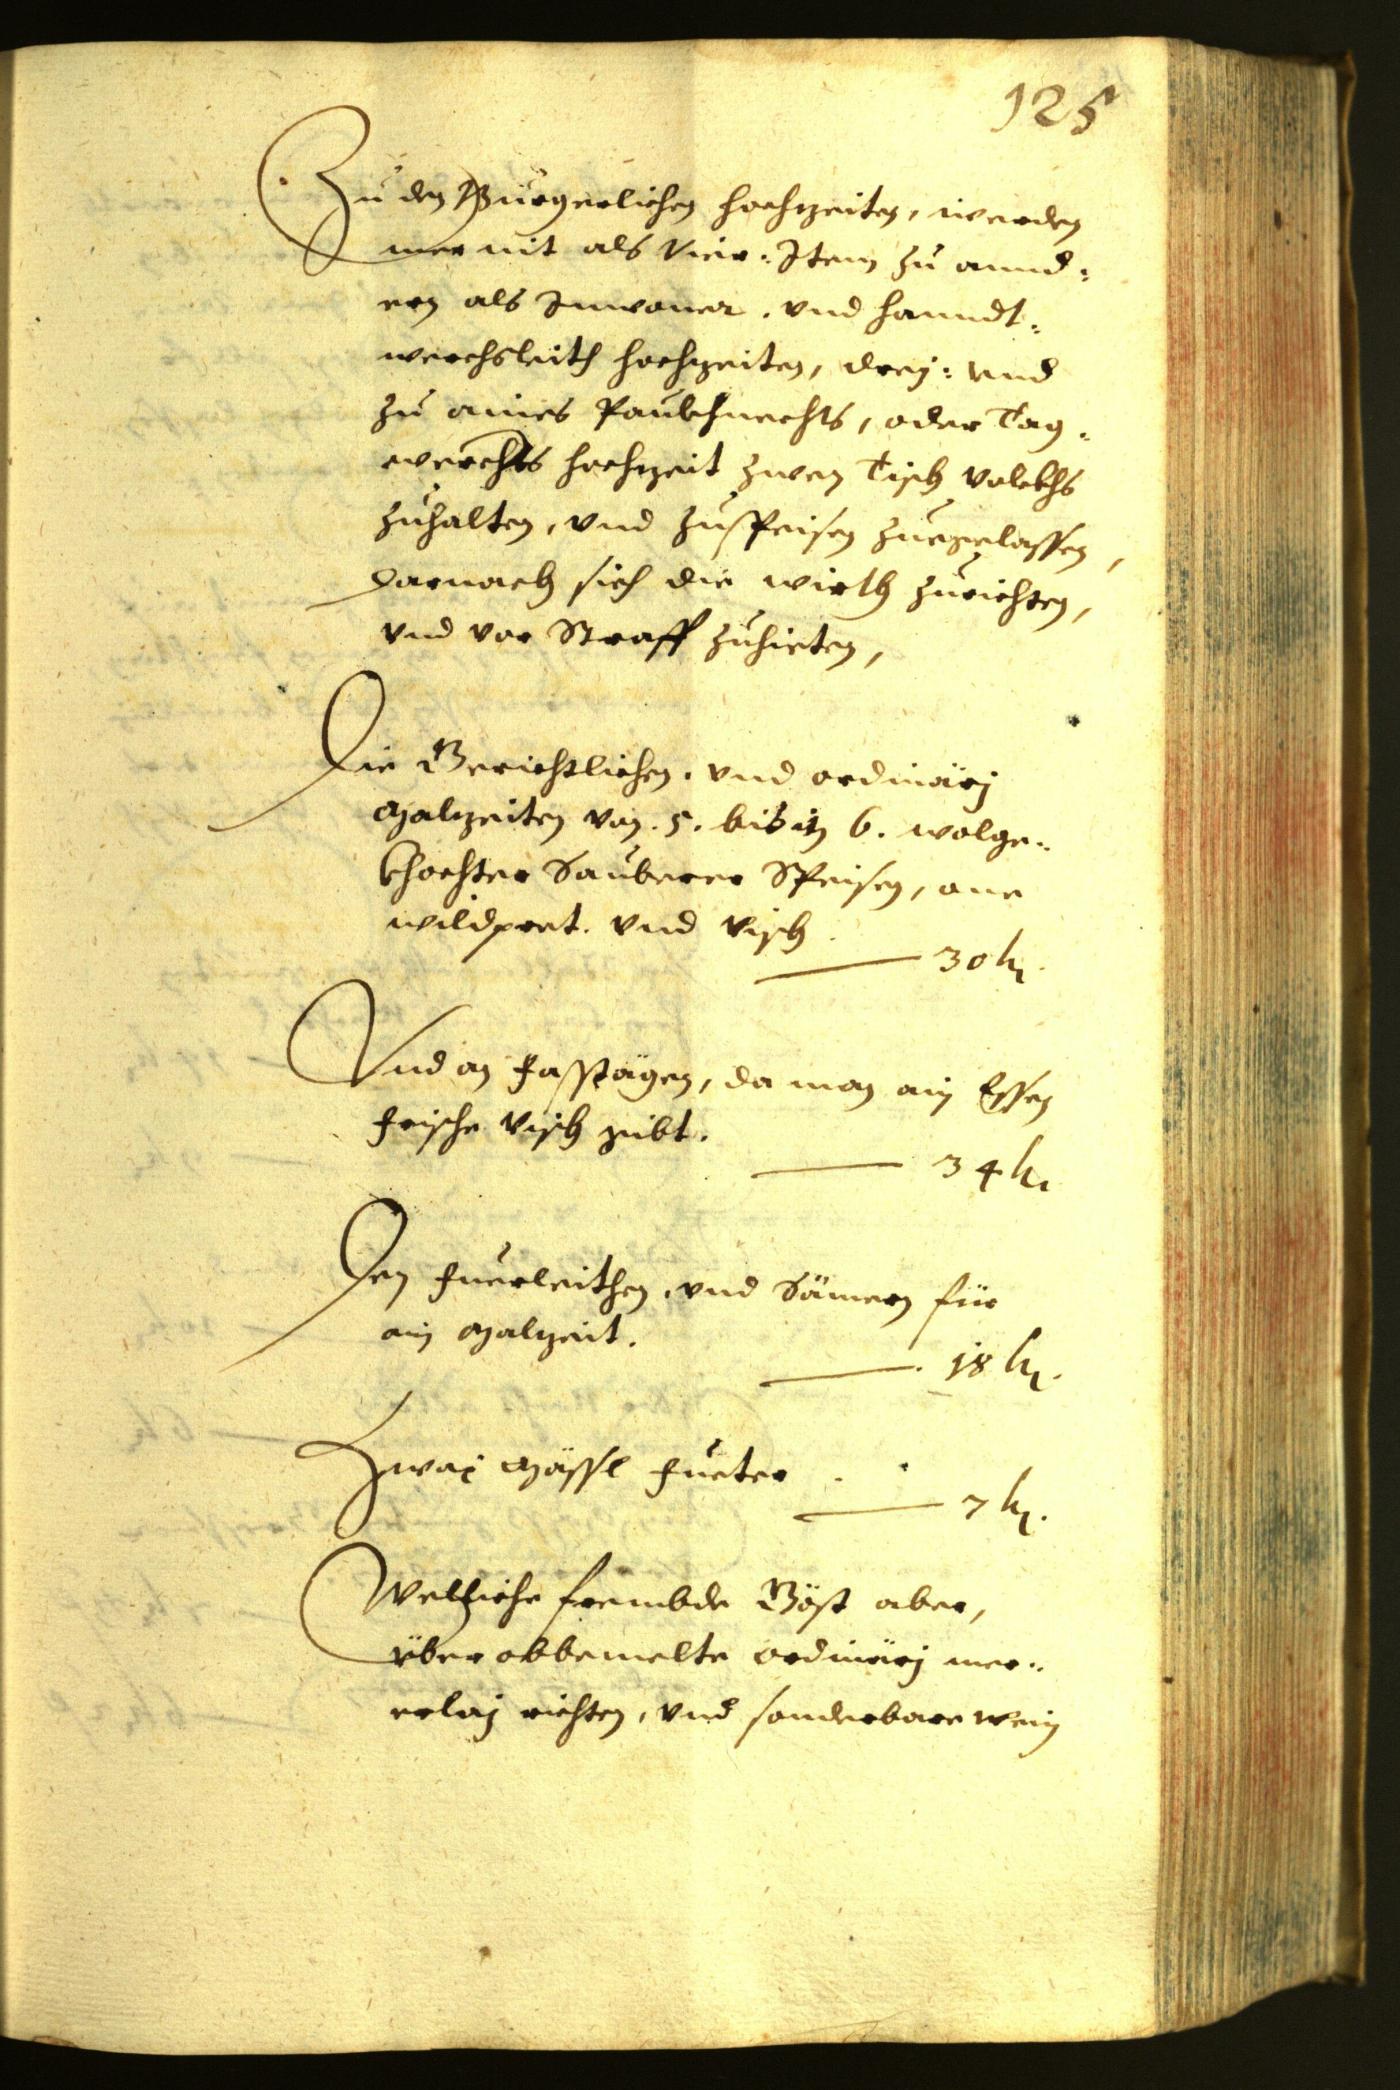 125
Zu den Burgerlichen hochzeiten, werden
mer nit als Vier: Item zu annd:
ern als Inwoner. und hanndt:
werchsleith hochzeiten, drej: und
zu aines Paukhnechts, oder Tag:
werchers hochzeit zwen Tisch volckhs
zuhalten, und zuspeisen zuegelassen,
darnach sich die wirth zurichten,
und vor Straff zuhieten,
Die Gerichtlichen. und ordinärj
Malzeiten von. 5. bis in 6. wolge:
khochter Sauberer Speisen, one
wildpret. und visch
30 kr.
Und an Fasstägen, da man ain Essen
frische visch gibt.
34 kr
Den Fuerleithen, und Sämern für
ain Malzeit.
18 kr.
Zwaj Mässl Fueter
7 kr.
Welliche frembde Gäst aber,
über obbemelte ordinärj mer:
erlaj richten, und sonderbare wein